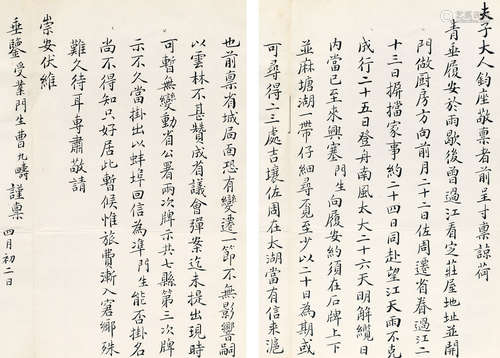 夫子大人鈞座敬稟者前呈寸稟諒荷
青垂履安於雨歇後曾過江看定莊屋地址並開
門做厨房方向前月二十二日佐周遷省眷過江二
十三日摒擋家事約二十四日同赴望江天雨不克
成行二十五日登舟南風太大二十六天明解纜日
內當已至來興塞門生向履安約須在石牌上下
並麻塘湖一帶仔細尋覓至少以二十日為期或
可尋得二三處吉壤佐周在太湖當有信來滬
也前稟省城局面恐有變遷一節不無影響嗣
以雲林不甚贊成省議會彈案迄未提出現時
可暫無變動省公署兩次牌示共七縣第三次牌
示不久當掛出以蚌埠回信為準門生能否掛名
尚不得知只好居此暫候惟旅費漸入窘鄉殊
難久待耳專肅敬請
崇安伏維
垂鑒受業門生曹九疇謹稟 四月初二日